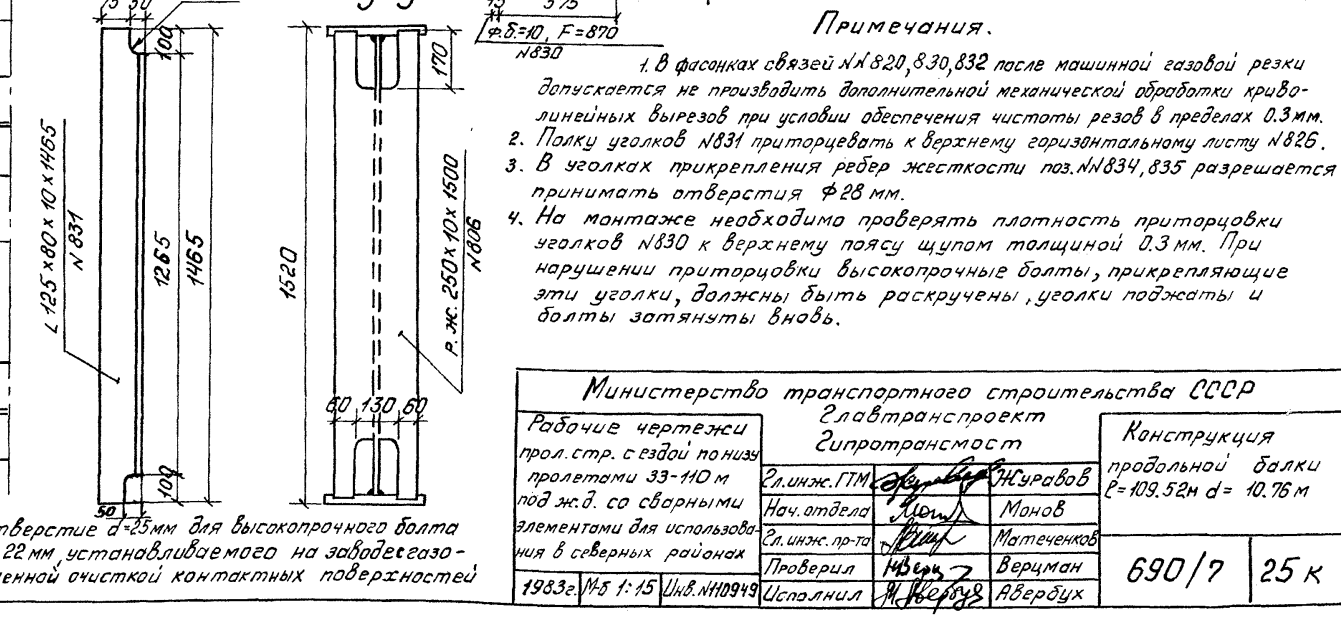 Ф.б.=10, F=870
N830
Примечания.
1. В фасонках связей NN820,830,832 после машинной газовой резки
допускается не производить дополнительной механической обработки криво-
линейных вырезов при условии обеспечения чистоты резов в пределах 0.3мм.
2. Полку уголков N831 приторцевать к верхнему горизонтальному листу N826.
3. В уголках прикрепления ребер жесткости поз.NN834,835 разрешается
принимать отверстия ф28 мм.
4. На монтаже необходимо проверять плотность приторцовки
уголков N830 к верхнему поясу щупом толщиной 0.3 мм. При
нарушении приторцовки высокопрочные болты, прикрепляющие
эти уголки, должны быть раскручены, уголки поджаты и
болты затянуты вновь.
100
L 125×80×10×1465
N831
1265
1465
100
50
170
1520
Р.ж. 250×10×1500
N806
60 130 60
тверстие d=25мм для высокопрочного болта
22 мм, устанавливаемого на заводе с газо-
енной очисткой контактных поверхностей
Министерство транспортного строительства СССР
Главтранспроект
Гипротрансмост
Рабочие чертежи
прол.стр. с ездой понизу
пролетами 33-110 м
под ж.д. со сварными
элементами для использова-
ния в северных районах
1983г. М-б 1:15 Инв.N110949
Гл.инж.ГТМ Журавов
Нач.отдела Монов
Гл.инж.пр-та Матеченков
Проверил Верцман
Исполнил Авербух
Конструкция
продольной балки
ℓ=109.52м d= 10.76 м
690/7 25 к